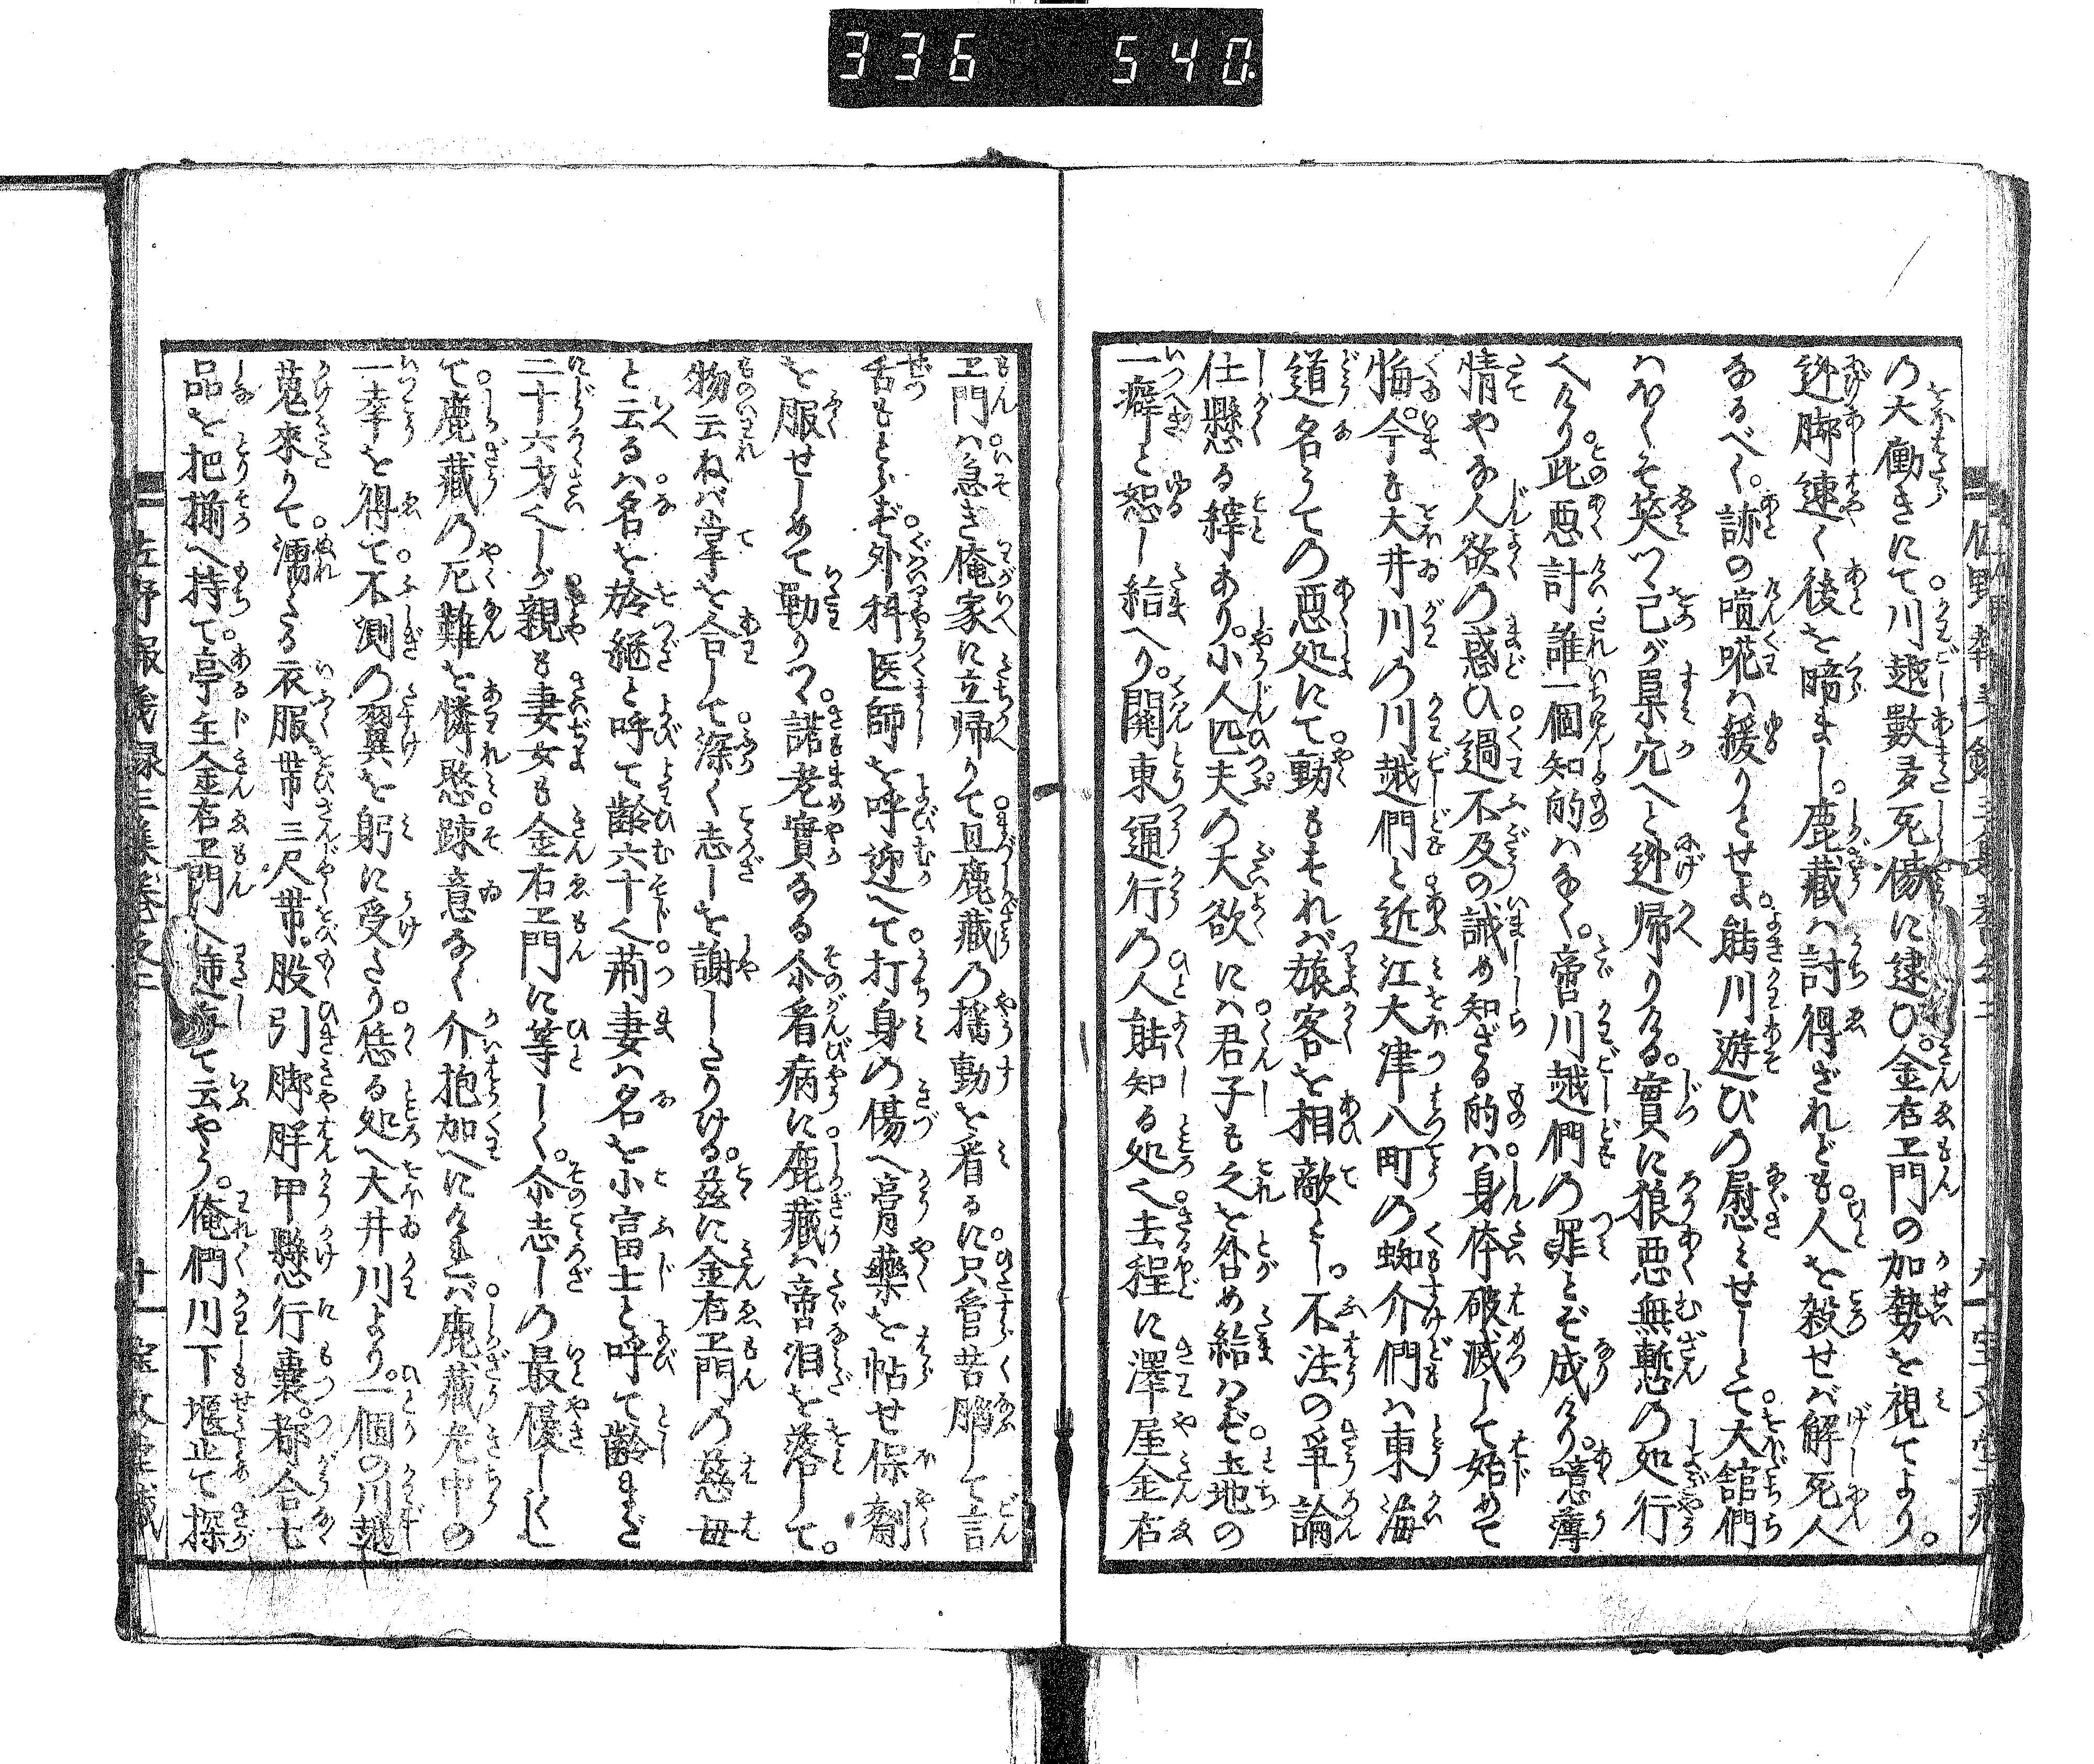 336 540
の大働きにて川越數多死傷に逮び。金右エ門の加勢を視てより。
迯脚速く後を暗まし。鹿藏は討得ざれども人を殺せば解死人
なるべく。跡の喧𠵅は緩りとせよ。能川遊びの慰みせしとて大舘們
はほくそ笑つゝ己が巣穴へと迯帰りける。實に狼悪無慙の処行
也けり此悪計誰一個知的はなく。啻川越們の罪とぞ成けり。噫薄
情やな人欲の惑ひ過不及の誡め知ざる的は身体破滅して始めて
悔。今も大井川の川越們と近江大津八町の蜘介們は東海
道名うての悪処にて動もすれば旅客を相敵とし。不法の爭論
仕懸る縡あり。小人匹夫の大欲には君子も之を咎め給はず。土地の
一癖と恕し給へり。関東通行の人能知る処也去程に澤屋金右
エ門は急ぎ俺家に立帰りて且鹿藏の揺動を看るに。只管苦脳して言
舌もとらず。外科医師を呼迎へて。打身の傷へ膏藥を帖せ保剤
を服せしめて勦りつゝ。諾老實なる尒看病に鹿藏は啻泪を落して。
物云ねば掌を合して深く志しを謝しさりける。茲に金右エ門の慈母
と云るは名を於継と呼て齢六十也荊妻は名を小富士と呼て齢まだ
二十六才也しが親も妻女も金右エ門に等しく。尒志しの最優しくし
て鹿藏の厄難を憐愍。踈意なく介抱加へにければ鹿藏老中の
一幸を得て不測の翼を躬に受たり。恁る処へ大井川より。一個の川越
蒐來りて濡たる衣服帯三尺帯。股引脚胖甲懸行嚢。都合七
品を把揃へ持て。亭主金右エ門へ て云やう。俺們川下堰止て探
佐野報義録三集巻之二 十一 宝文堂藏